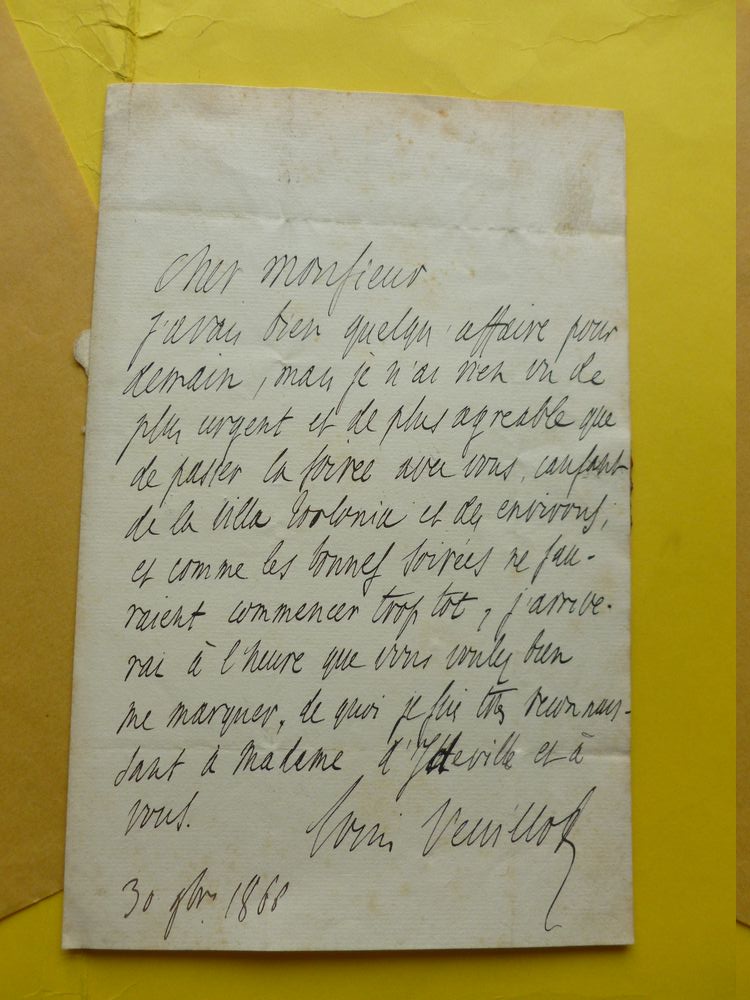 Cher Monsieur
j'avais bien quelqu'affaire pour
demain, mais je n'ai rien vu de
plus urgent et de plus agreable que
de passer la soirée avec vous, causant
de la villa Torlonia et des environs,
et comme les bonnes soirées ne sau-
raient commencer trop tot, j'arrive-
rai à l'heure que vous voulez bien
me marquer, de quoi je suis très reconnais-
sant à Madame d'Ideville et à
vous. Louis Veuillot
30 9bre 1868